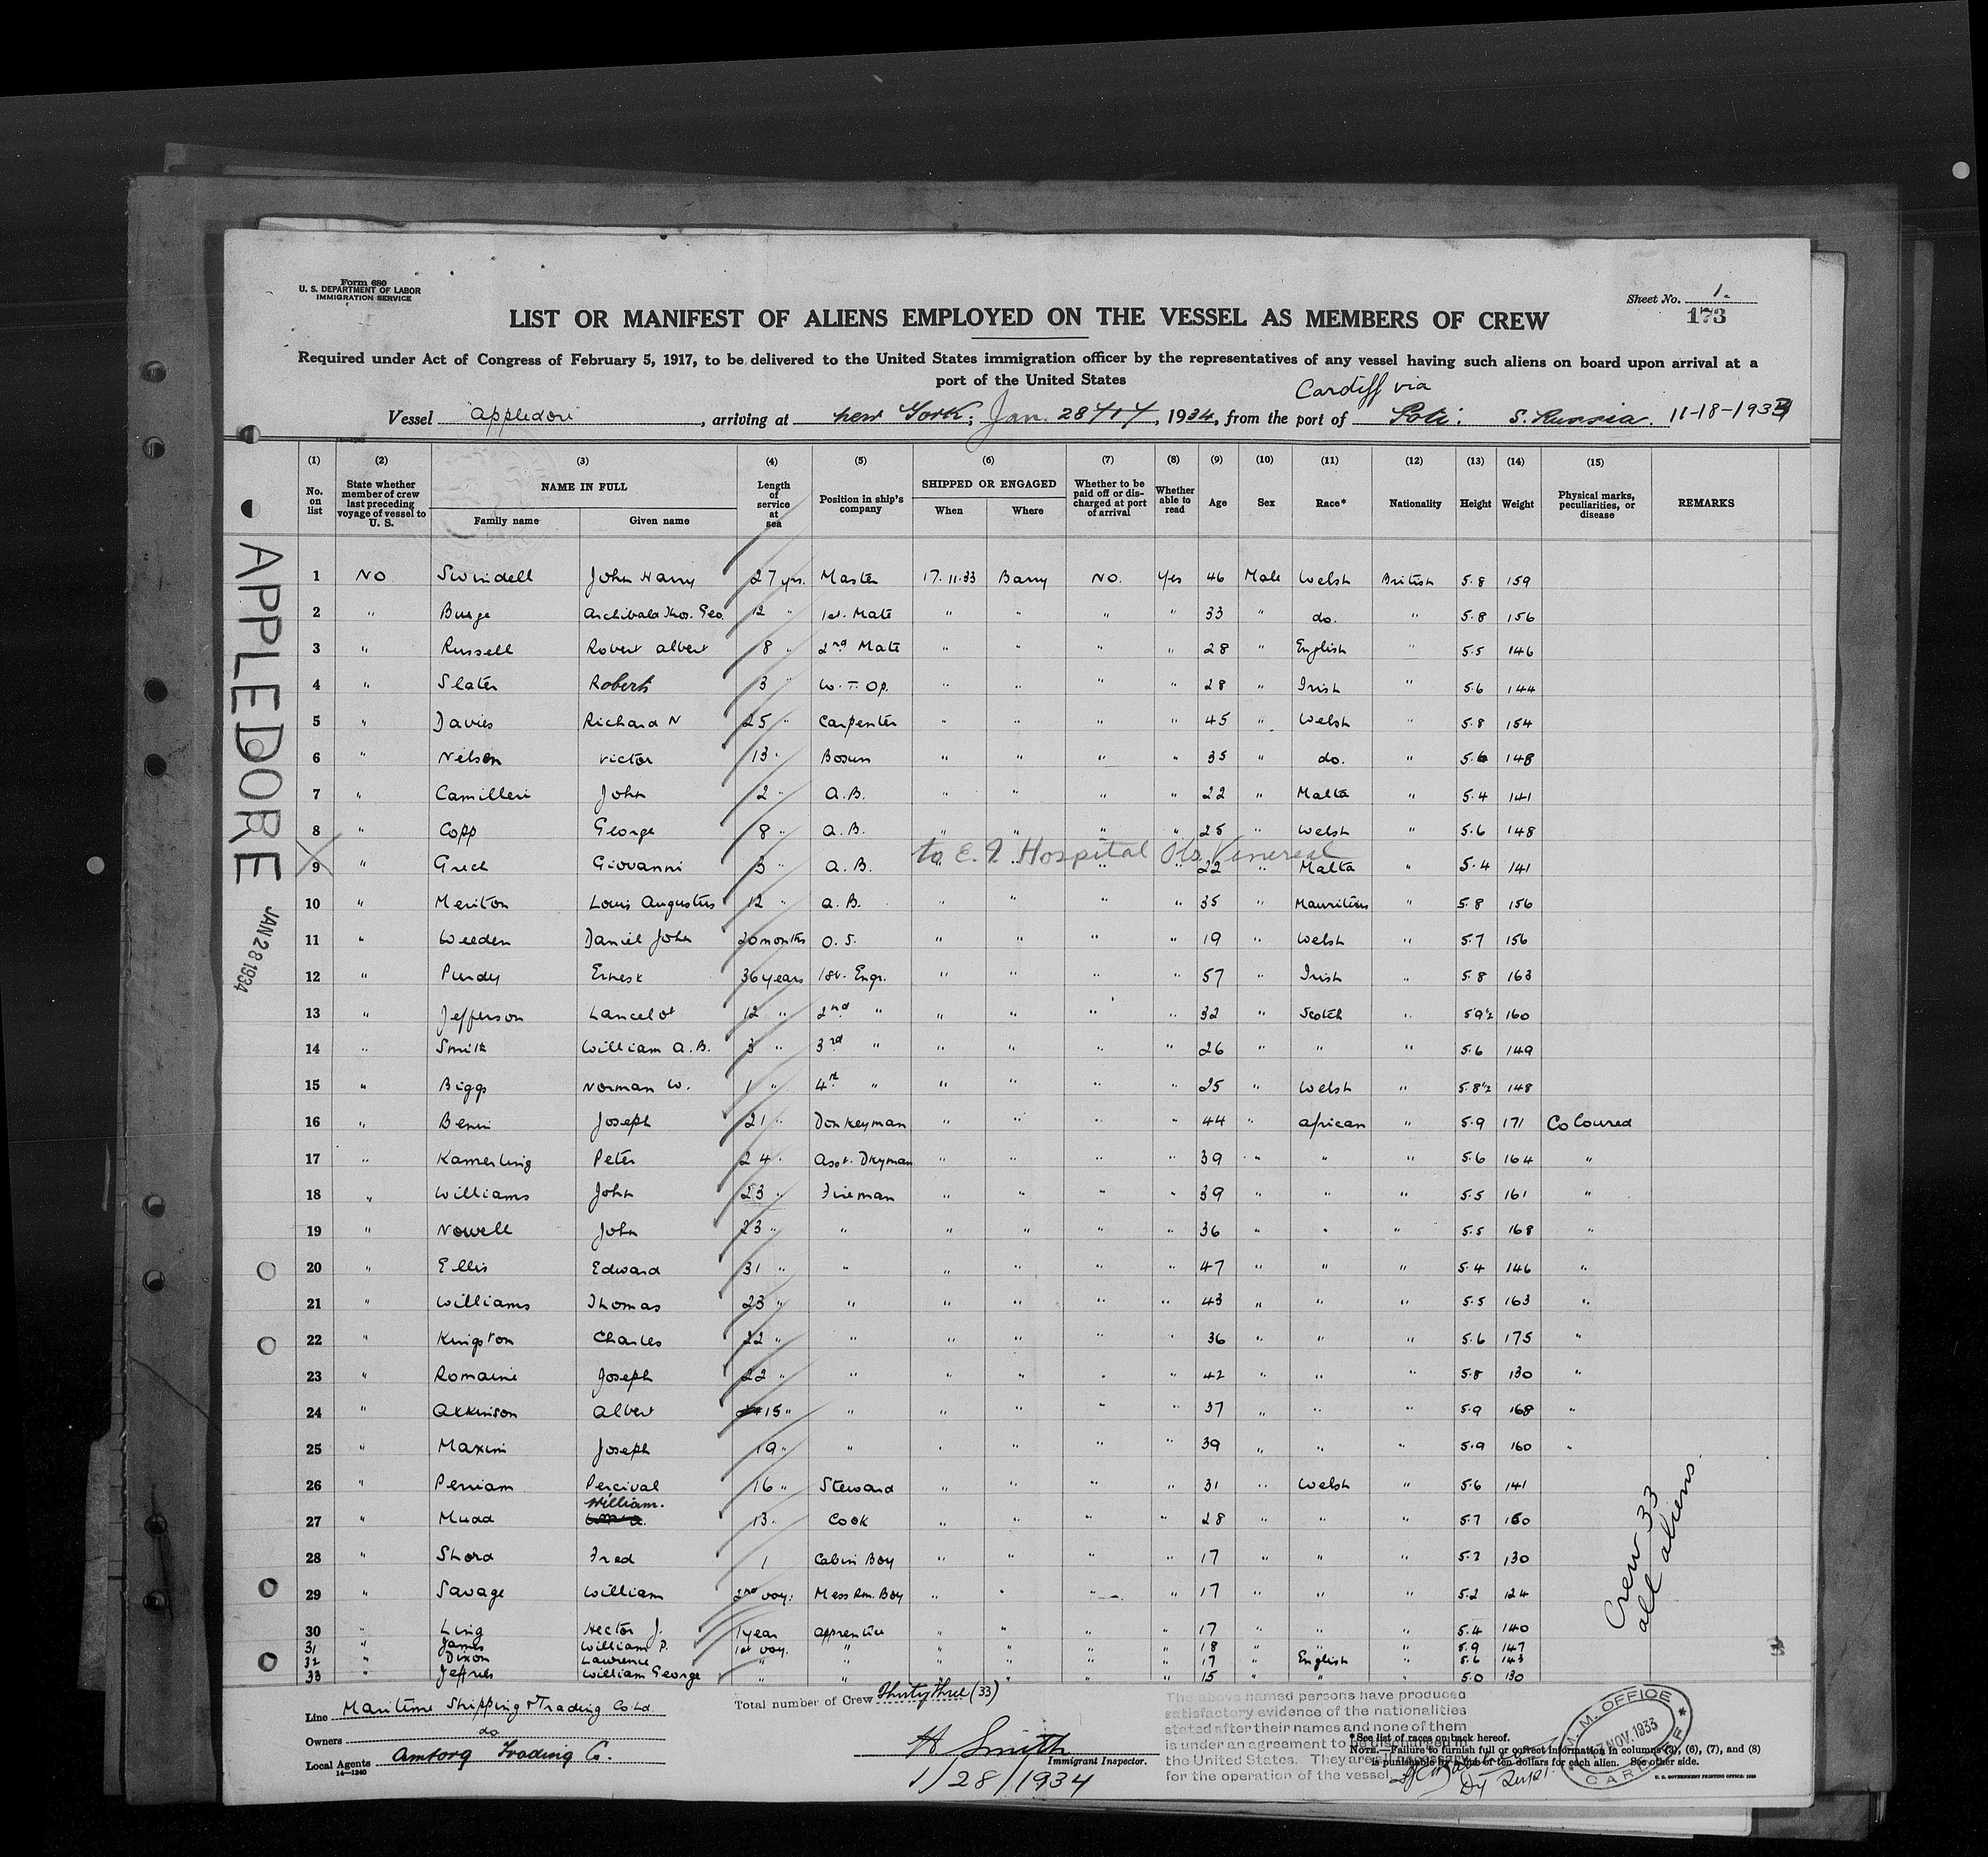 Form 680
U. S. DEPARTMENT OF LABOR
IMMIGRATION SERVICE
Sheet No. 1.
173
LIST OR MANIFEST OF ALIENS EMPLOYED ON THE VESSEL AS MEMBERS OF CREW
Required under Act of Congress of February 5, 1917, to be delivered to the United States immigration officer by the representatives of any vessel having such aliens on board upon arrival at a
port of the United States
Cardiff via
Vessel "Appledore", arriving at New York; Jan. 28, 1934, from the port of Poti. S. Russia. 11-18-1933
(1) (2) (3) (4) (5) (6) (7) (8) (9) (10) (11) (12) (13) (14) (15)
No. on list State whether member of crew last preceding voyage of vessel to U. S. NAME IN FULL Family name Given name Length of service at sea Position in ship's company SHIPPED OR ENGAGED When Where Whether to be paid off or discharged at port of arrival Whether able to read Age Sex Race* Nationality Height Weight Physical marks, peculiarities, or disease REMARKS
APPLEDORE
JAN 28 1934
1 NO Swindell John Harry 27 yrs. Master 17.11.33 Barry NO. Yes 46 Male Welsh British 5.8 159
2 " Burge Archibald Thos. Geo. 12 " 1st. Mate " " " " 33 " do. " 5.8 156
3 " Russell Robert Albert 8 " 2nd Mate " " " " 28 " English " 5.5 146
4 " Slater Robert 3 " W.T. Op. " " " " 28 " Irish " 5.6 144
5 " Davies Richard N 25 " Carpenter " " " " 45 " Welsh " 5.8 154
6 " Nelson Victor 13 " Bosun " " " " 35 " do. " 5.6 148
7 " Camilleri John 2 " A.B. " " " " 22 " Malta " 5.4 141
8 " Copp George 8 " A.B. " " " " 25 " Welsh " 5.6 148
to E. I. Hospital Obs Venereal
9 " Grech Giovanni 3 " A.B. " " " " 22 " Malta " 5.4 141
10 " Meriton Louis Augustus 12 " A.B. " " " " 35 " Mauritius " 5.8 156
11 " Weeden Daniel John 20 months O.S. " " " " 19 " Welsh " 5.7 156
12 " Purdy Ernest 36 years 1st. Engr. " " " " 57 " Irish " 5.8 163
13 " Jefferson Lancelot 12 " 2nd " " " " " 32 " Scotch " 5.9½ 160
14 " Smith William A.B. 3 " 3rd " " " " " 26 " " " 5.6 149
15 " Biggs Norman W. 1 " 4th " " " " " 25 " Welsh " 5.8½ 148
16 " Benn Joseph 21 " Donkeyman " " " " 44 " African " 5.9 171 Coloured
17 " Kamerling Peter 24 " Asst. Dkyman " " " " 39 " " " 5.6 164 "
18 " Williams John 23 " Fireman " " " " 39 " " " 5.5 161 "
19 " Nowell John 23 " " " " " " 36 " " " 5.5 168 "
20 " Ellis Edward 31 " " " " " " 47 " " " 5.4 146 "
21 " Williams Thomas 23 " " " " " " 43 " " " 5.5 163 "
22 " Kingston Charles 22 " " " " " " 36 " " " 5.6 175 "
23 " Romaine Joseph 22 " " " " " " 42 " " " 5.8 130 "
24 " Atkinson Albert 15 " " " " " " 37 " " " 5.9 168 "
25 " Maxim Joseph 19 " " " " " " 39 " " " 5.9 160 "
26 " Perriam Percival 16 " Steward " " " " 31 " Welsh " 5.6 141
27 " Mudd William. 13 " Cook " " " " 28 " " " 5.7 150
28 " Shord Fred 1 Cabin Boy " " " " 17 " " " 5.2 130
29 " Savage William 2nd voy. Mess Rm. Boy " " " " 17 " " " 5.2 124
30 " Ling Hector J. 1 year Apprentice " " " " 17 " " " 5.4 140
31 " James William P. 1st voy. " " " " " 18 " " " 5.9 147
32 " Dixon Lawrence " " " " " " 17 " English " 5.6 143
33 " Jeffries William George " " " " " " 15 " " " 5.0 130
Crew 33
all aliens.
Line Maritime Shipping & Trading Co Ld.
Owners do
Local Agents Amtorg Trading Co.
14—1240
Total number of Crew Thirty Three (33)
H Smith
Immigrant Inspector.
1/28/1934
The above named persons have produced
satisfactory evidence of the nationalities
stated after their names and none of them
is under an agreement to be discharged in
the United States. They are all necessary
for the operation of the vessel.
Dy Supt.
* See list of races on back hereof.
NOTE.—Failure to furnish full or correct information in columns (5), (6), (7), and (8)
is punishable by a fine of ten dollars for each alien. See other side.
U. S. GOVERNMENT PRINTING OFFICE
M. M. OFFICE
17 NOV. 1933
CARDIFF